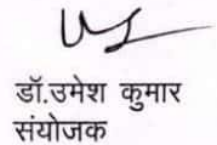 डॉ.उमेश कुमार
संयोजक